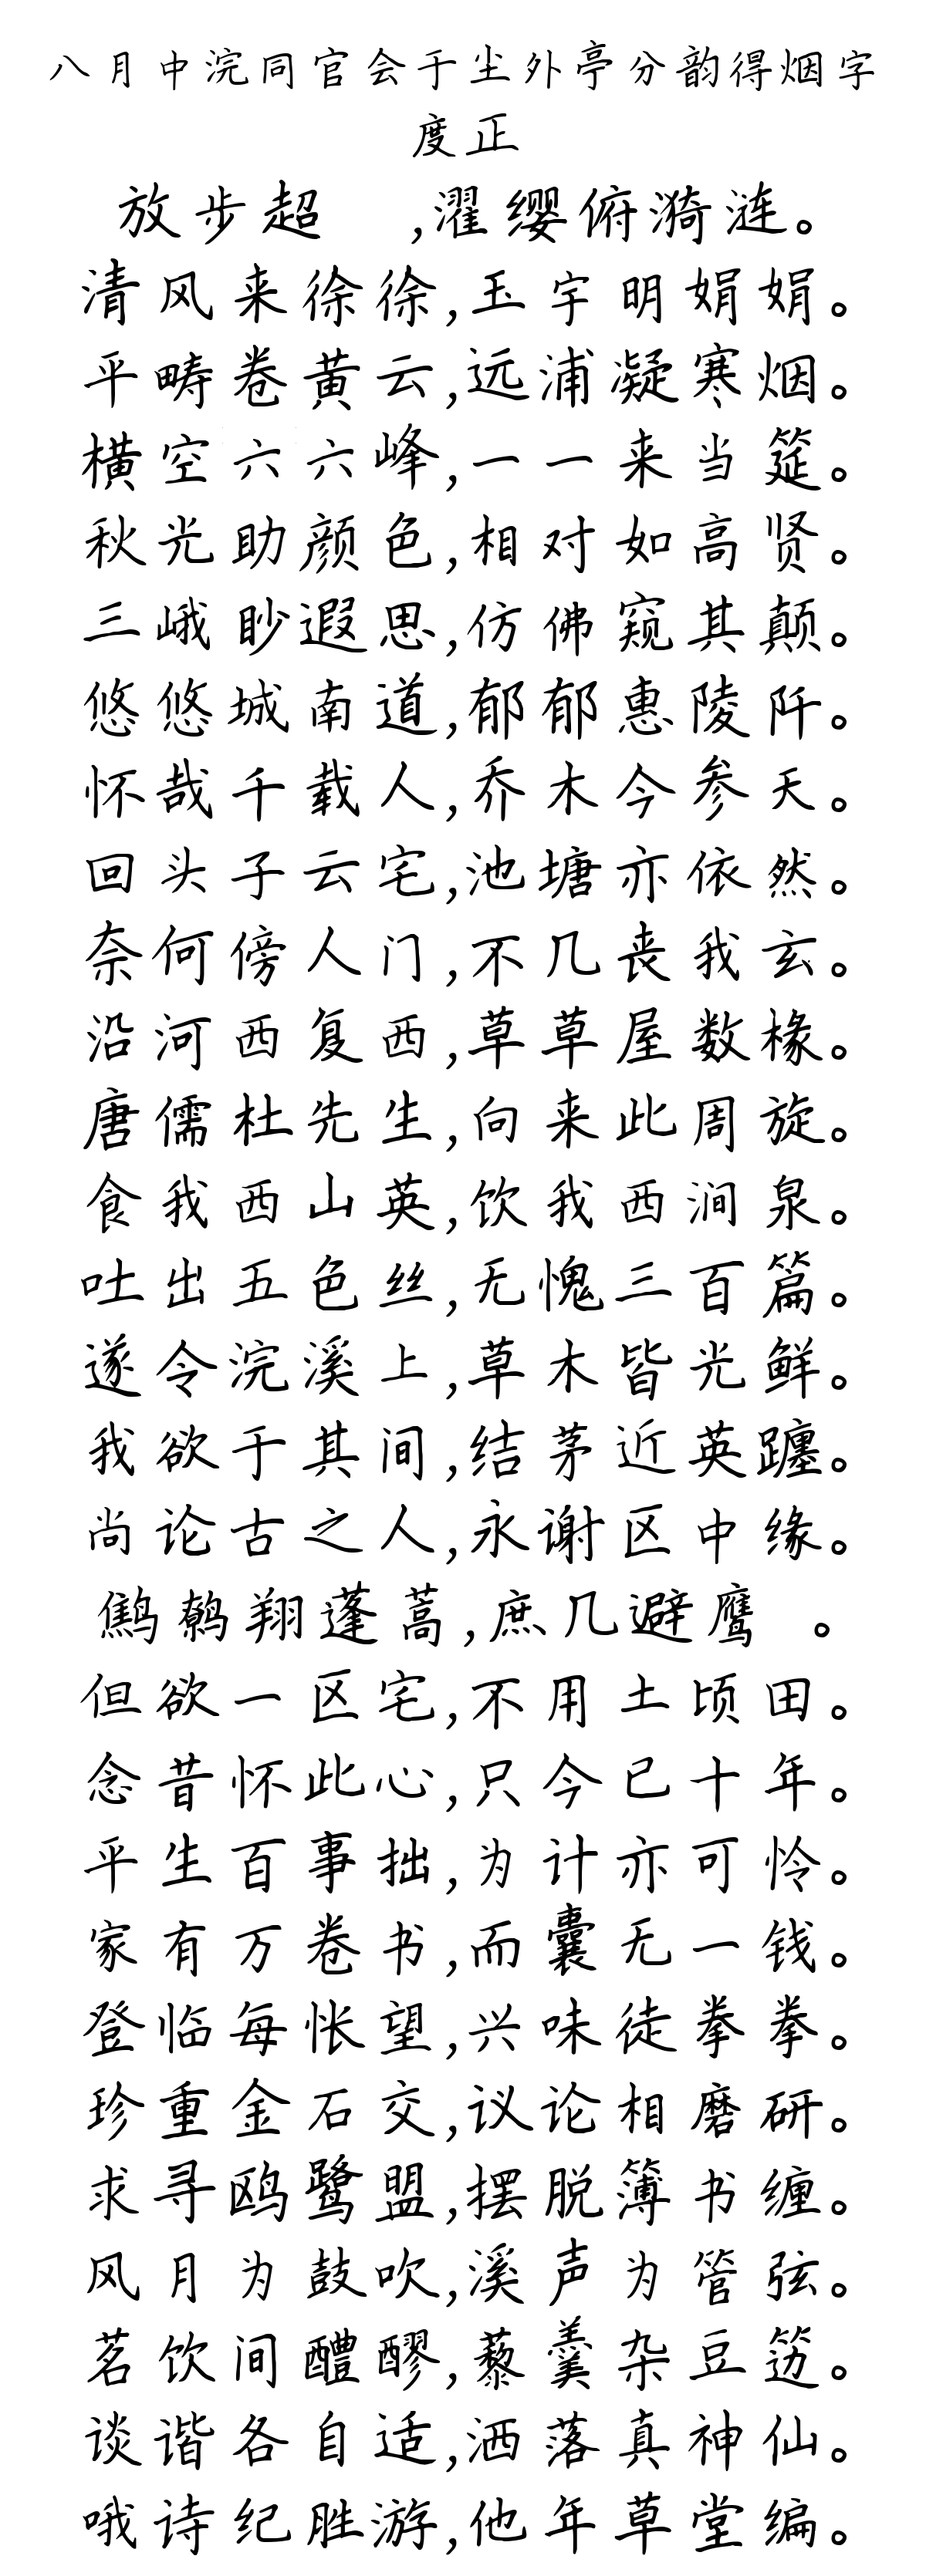 八月中浣同官会于尘外亭分韵得烟字
度正
放步超 ,濯缨俯漪涟。
清风来徐徐,玉宇明娟娟。
平畴卷黄云,远浦凝寒烟。
横空六六峰,一一来当筵。
秋光助颜色,相对如高贤。
三峨眇遐思,仿佛窥其颠。
悠悠城南道,郁郁惠陵阡。
怀哉千载人,乔木今参天。
回头子云宅,池塘亦依然。
奈何傍人门,不几丧我玄。
沿河西复西,草草屋数椽。
唐儒杜先生,向来此周旋。
食我西山英,饮我西涧泉。
吐出五色丝,无愧三百篇。
遂令浣溪上,草木皆光鲜。
我欲于其间,结茅近英躔。
尚论古之人,永谢区中缘。
鹪鹩翔蓬蒿,庶几避鹰 。
但欲一区宅,不用土顷田。
念昔怀此心,只今已十年。
平生百事拙,为计亦可怜。
家有万卷书,而囊无一钱。
登临每怅望,兴味徒拳拳。
珍重金石交,议论相磨研。
求寻鸥鹭盟,摆脱簿书缠。
风月为鼓吹,溪声为管弦。
茗饮间醴醪,藜羹杂豆笾。
谈谐各自适,洒落真神仙。
哦诗纪胜游,他年草堂编。